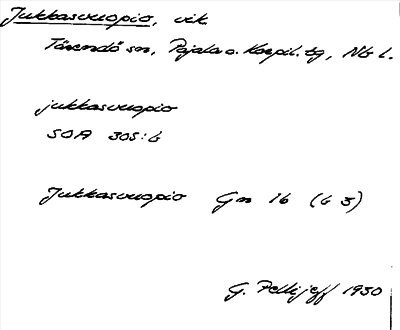 Jukkasvuopio, vik
Tärendö sn, Pajala o. Korpil. tg, Nb L.
jukkasvuopio
SOA 305:6
Jukkasvuopio Gn 16 (6 3)
G. Pellijeff 1930